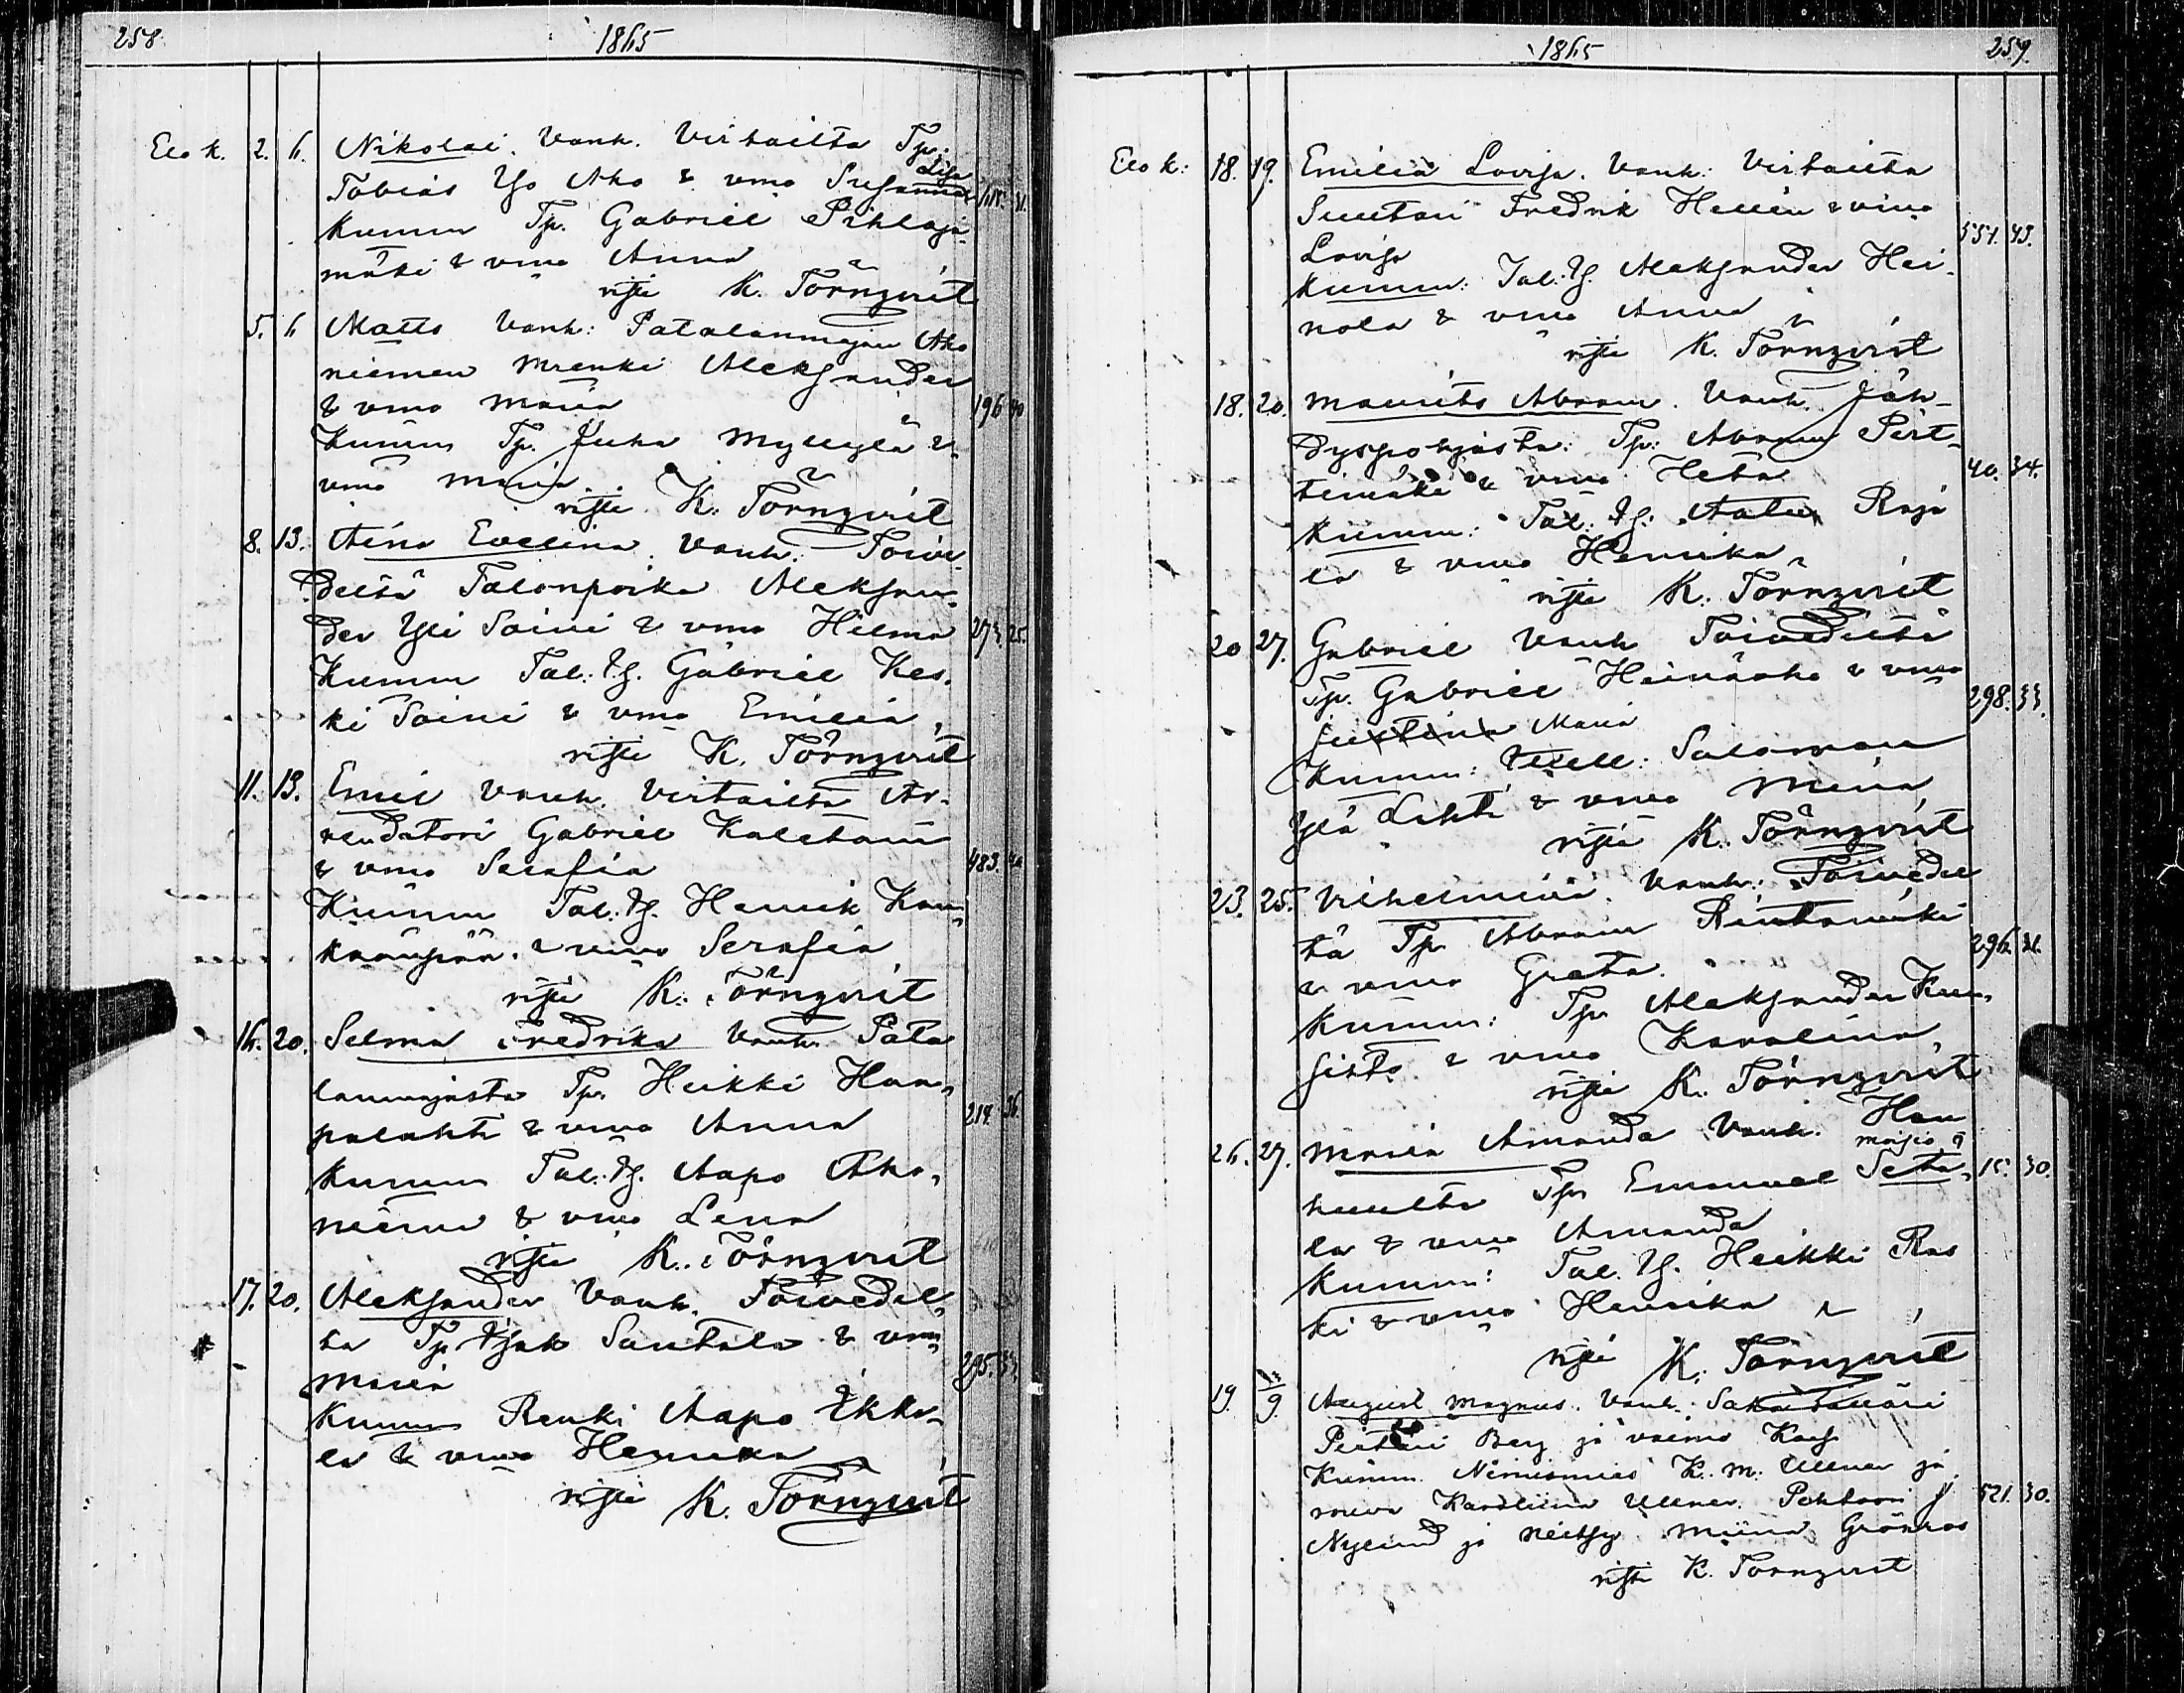 258.
1865
Elo k. 2. 6. Nikolai. Vanh. Virtailta Tp.
Tobias Yso Aho & vmo Susanna Lisa
Kumm Tp. Gabriel Pihlaja-
mäki & vmo Anna
risti K. Törnqvist
5. 6 Matts Vanh: Patalanmajan Aho
niemen Mrenki Aleksander
& vmo Maria 196 40
Kumm Tp. Juha Myllylä &
vmo Maria
risti K. Törnqvist
8. 13. Aina Evelina. Vanh. Toive-
delta Talonpoika Aleksan-
der Yli Soini & vmo Hilma 25.
Kumm Tal. Is. Gabriel Kes-
ki Soini & vmo Emilia,
risti K. Törnqvist
11. 13. Emil Vanh. Virtailta Ar-
rendatori Gabriel Kaletoin
& vmo Serafia 483.
Kumm Tal. Is. Henrik Kan
kaanpää & vmo Serafia
risti K. Törnqvist
16. 20. Selma Fredrika Vanh. Pata
lanmajasta Tp. Heikki Haa-
palahti & vmo Anna 214. 36.
Kumm Tal. Is. Aapo Aho-
niemi & vmo Lena
risti K. Törnqvist
17. 20. Aleksander Vanh. Toivedel-
ta Tp. Isak Santala & vmo
Maria 295. 33.
Kumm Renki Aapo Ekko-
la & vmo Henrika
risti K. Törnqvist
1865
259.
Elo k: 18. 19. Emilia Lovisa. Vanh: Virtailta
Suutari Fredrik Hellén & vmo
Lovisa 551. 43.
Kumm: Tal: Is. Aleksander Hei-
nola & vmo Anna
risti K. Törnqvist
18. 20. Maurits Abram. Vanh. Jäh-
dyspohjasta: Tp: Abram Pert-
timäki & vmo Heta 40. 34.
Kumm: Tal: Is. Aatu Raja
la & vmo Henrika
risti K. Törnqvist
20 27. Gabriel Vanh Toivedelta
Tp. Gabriel Heinäaho & vmo 298. 33.
Justina Maria
Kumm: Salomon
Ylä Lahti & vmo Miina
risti K. Törnqvist
23. 25. Vilhelmiina. Vanh: Toivedel
ta Tp Abram Rintamäki 296. 31.
& vmo Greta.
Kumm: Tp. Aleksander Kuu-
sisto & vmo Karolina,
risti K. Törnqvist
26. 27. Maria Amanda Vanh. Hau
huulta Tp. Emanuel Setä- maija 15. 30.
la & vmo Amanda
Kumm: Tal. Is. Heikki Ras
ki & vmo Henrika
risti K. Törnqvist
19. 9. August Magnus. Vanh:
Pietari Berg ja vaimo
Kumm. Nimismies K. M. Ullner ja
rouva Karoliina Ullner. Pehtori J. 521. 30.
Nylund ja neitsy Miina Grönroos
risti K. Törnqvist